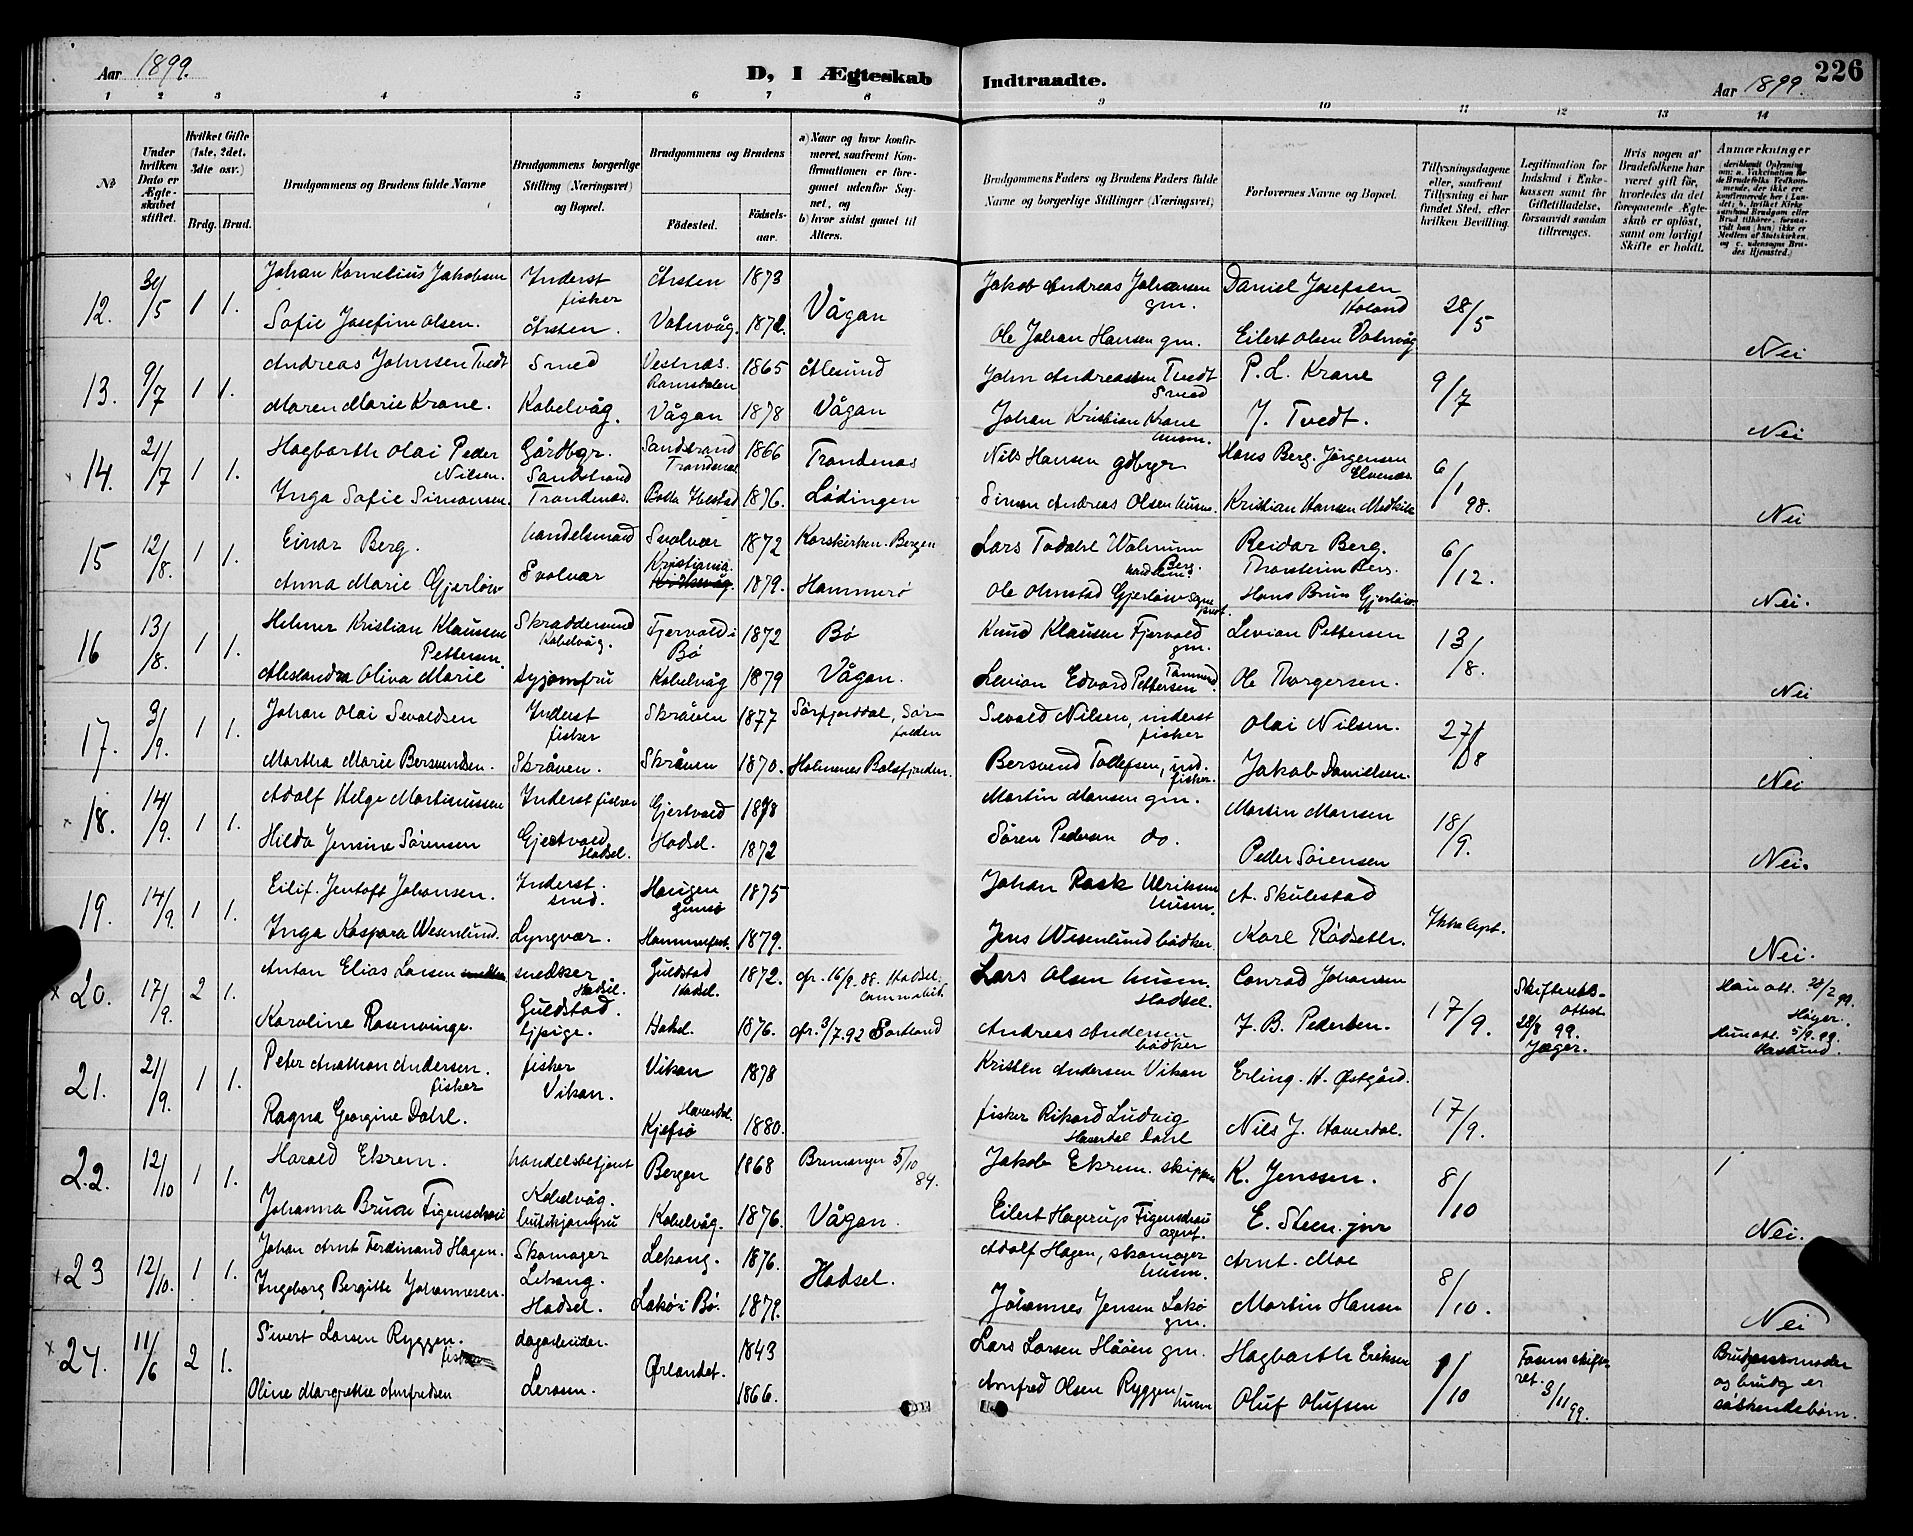 Aar 1899.
D, I Ægteskab
Indtraadte.
Aar 1899.
226
1 2 3 4 5 6 7 8
9 10 11 12 13 14
№
Under hvilken Dato er Ægteskabet stiftet.
Hvilket Gifte (1ste, 2det, 3die osv.)
Brdg. Brud.
Brudgommens og Brudens fulde Navne
Brudgommens borgerlige Stilling (Næringsvei) og Bopæl.
Brudgommens og Brudens
Fødested.
Fødsels-aar.
a) Naar og hvor konfirmeret, saafremt Konfirmationen er foregaaet udenfor Sognet, og
b) hvor sidst gaaet til Alters.
Brudgommens Faders og Brudens Faders fulde Navne og borgerlige Stillinger (Næringsvei)
Forlovernes Navne og Bopæl.
Tillysningsdagene eller, saafremt Tillysning ei har fundet Sted, efter hvilken Bevilling.
Legitimation for Indskud i Enkekassen samt for Giftetilladelse, forsaavidt saadan tiltrænges.
Hvis nogen af Brudefolkene har været gift før, hvorledes da det foregaaende Ægteskab er opløst, samt om lovligt Skifte er holdt.
Anmærkninger
12. 30/5 1 1. Johan Kornelius Jakobsen Inderst fisker Årsten 1873
Sofie Josefine Olsen. Årsten. Vatnvåg. 1872. Vågan
Jakob Andreas Johansen gm. Daniel Josefsen Holand 28/5
Ole Johan Hansen gm. Eilert Olsen Vatnvåg Nei
13. 9/7 1 1. Andreas Johnsen Tvedt Smed Vestnæs. Romsdalen 1865 Ålesund
Maren Marie Krane. Kabelvåg. Vågan 1878 Vågan
John Andreassen Tvedt Smed P. L. Krane 9/7
Johan Kristian Krane husm. J. Tvedt. Nei
14. 21/7 1 1. Hagbarth Olai Peder Nilsen. Gårdbgr. Sandstrand Trondenæs 1866 Trondenæs
Inga Sofie Simonsen. Sandstrand Trondenæs. 1876. Lødingen
Nils Hansen gdbrger Hans Berg. Jørgensen Elvenæs. 6/1 98.
Simon Andreas Olsen husm. Kristian Hansen Nei
15 12/8. 1 1. Einar Berg. handelsmand Svolvær 1872 Korskirken. Bergen
Anna Marie Gjerløw Svolvær Kristiania. 1879. Hammerø
Lars Todahl Walnum Berg. handelsm. Reidar Berg. Thorstein Berg. 6/12.
Ole Olmstad Gjerløw sogneprest. Hans Bruun Gjerløw. Nei.
16 13/8. 1 1. Helmer Kristian Klausen Pettersen. Skræddersvend Kabelvåg. Fjervold i Bø 1872 Bø
Aleksandra Oliva Marie syjomfru Kabelvåg 1879 Vågan.
Knud Klausen Fjervold gm. Levian Pettersen 13/8.
Levian Edvard Pettersen Tømmerm. Ole Thorgersen. Nei
17. 3/9. 1 1. Johan Olai Sevaldsen Inderst fisker Skråven 1877 Sørfjorddal, Sørfolden
Martha Marie Bersvendsen. Skråven. Skråven 1870. Holmenes Balsfjorden.
Sevald Nilsen, inderst fisker Olai Nilsen. 27/8
Bersvend Tollefsen, ind. fisker. Jakob Danielsen. Nei
× 18. 14/9. 1 1. Adolf Helge Martinussen Inderst fisker Gjertvold 1878
Hilda Jensine Sørensen Gjertvold Hadsel. Hadsel. 1872
Martin Monsen gm. Martin Monsen 18/9.
Søren Pedersen do. Peder Sørensen Nei.
19. 14/9. 1 1. Eilif. Jentoft Johansen. Inderst. smed. Haugen Gimsø 1875
Inga Kaspara Wesenlund. Lyngvær. Hammerfest. 1879.
Johan Rask Ulriksen husm. A. Skulestad
Jens Wesenlund bødker. Karl Rødseth. Nei.
× 20. 17/9. 2 1. Anton Elias Larsen snedker Hadsel. Guldstad Hadsel. 1872. cfr. 16/9. 88. Hadsel.
Karoline Rosenvinge. Guldstad. tjpige. Hadsel. 1876. cfr. 3/7.92 Sortland
Lars Olsen husm. Hadsel. Conrad Johansen 17/9. Skifterets-attest 28/8 99. Jæger.
Andreas Andersen bødker J. B. Pedersen. Han att. 20/2 99. Høyer. Hun att. 5/9.99.
21. 21/9. 1 1. Peter Anathon Andersen. fisker fisker Vikan. Vikan 1878
Ragna Georgine Dahl. Haverdal. Kjefsø 1880.
Kristen Andersen Vikan Erling. H. Østgård. 17/9.
fisker Rikard Ludvig Haverdal Dahl Nils J. Haverdal.
22. 12/10 1 1. Harald Ekrem. handelsbetjent Bergen 1868 Bremanger 5/10 84.
Johanna Bruun Figenschau Kabelvåg. butikjomfru Kabelvåg. 1876. Vågan.
Jakob Ekrem. skipper K. Jenssen. 8/10 1
Eilert Hagerup Figenschau agent. E. Steen. jnr Nei.
× 23 12/10. 1 1. Johan Arnt Ferdinand Hagen. Skomager Lekang. 1876.
Ingeborg Bergitte Johannesen. Lekang. Hadsel. Lakø i Bø. 1879. Hadsel.
Adolf Hagen, skomager husm. Arnt. Moe 8/10.
Johannes Jensen Lakø gm. Martin Hansen Nei
× 24. 11/6 2 1. Sivert Larsen Ryggen. fisker dagarbeider. Ørlandet. 1843
Oline Margrethe Arnfredsen Lerosen. 1866.
Lars Larsen Hååen gm. Hagbarth Eriksen 1/10 Fosens skifteret. 3/11 99.
Arnfred Olsen Ryggen husm Oluf Olufsen Brudens moder og brudg er søskendebørn.